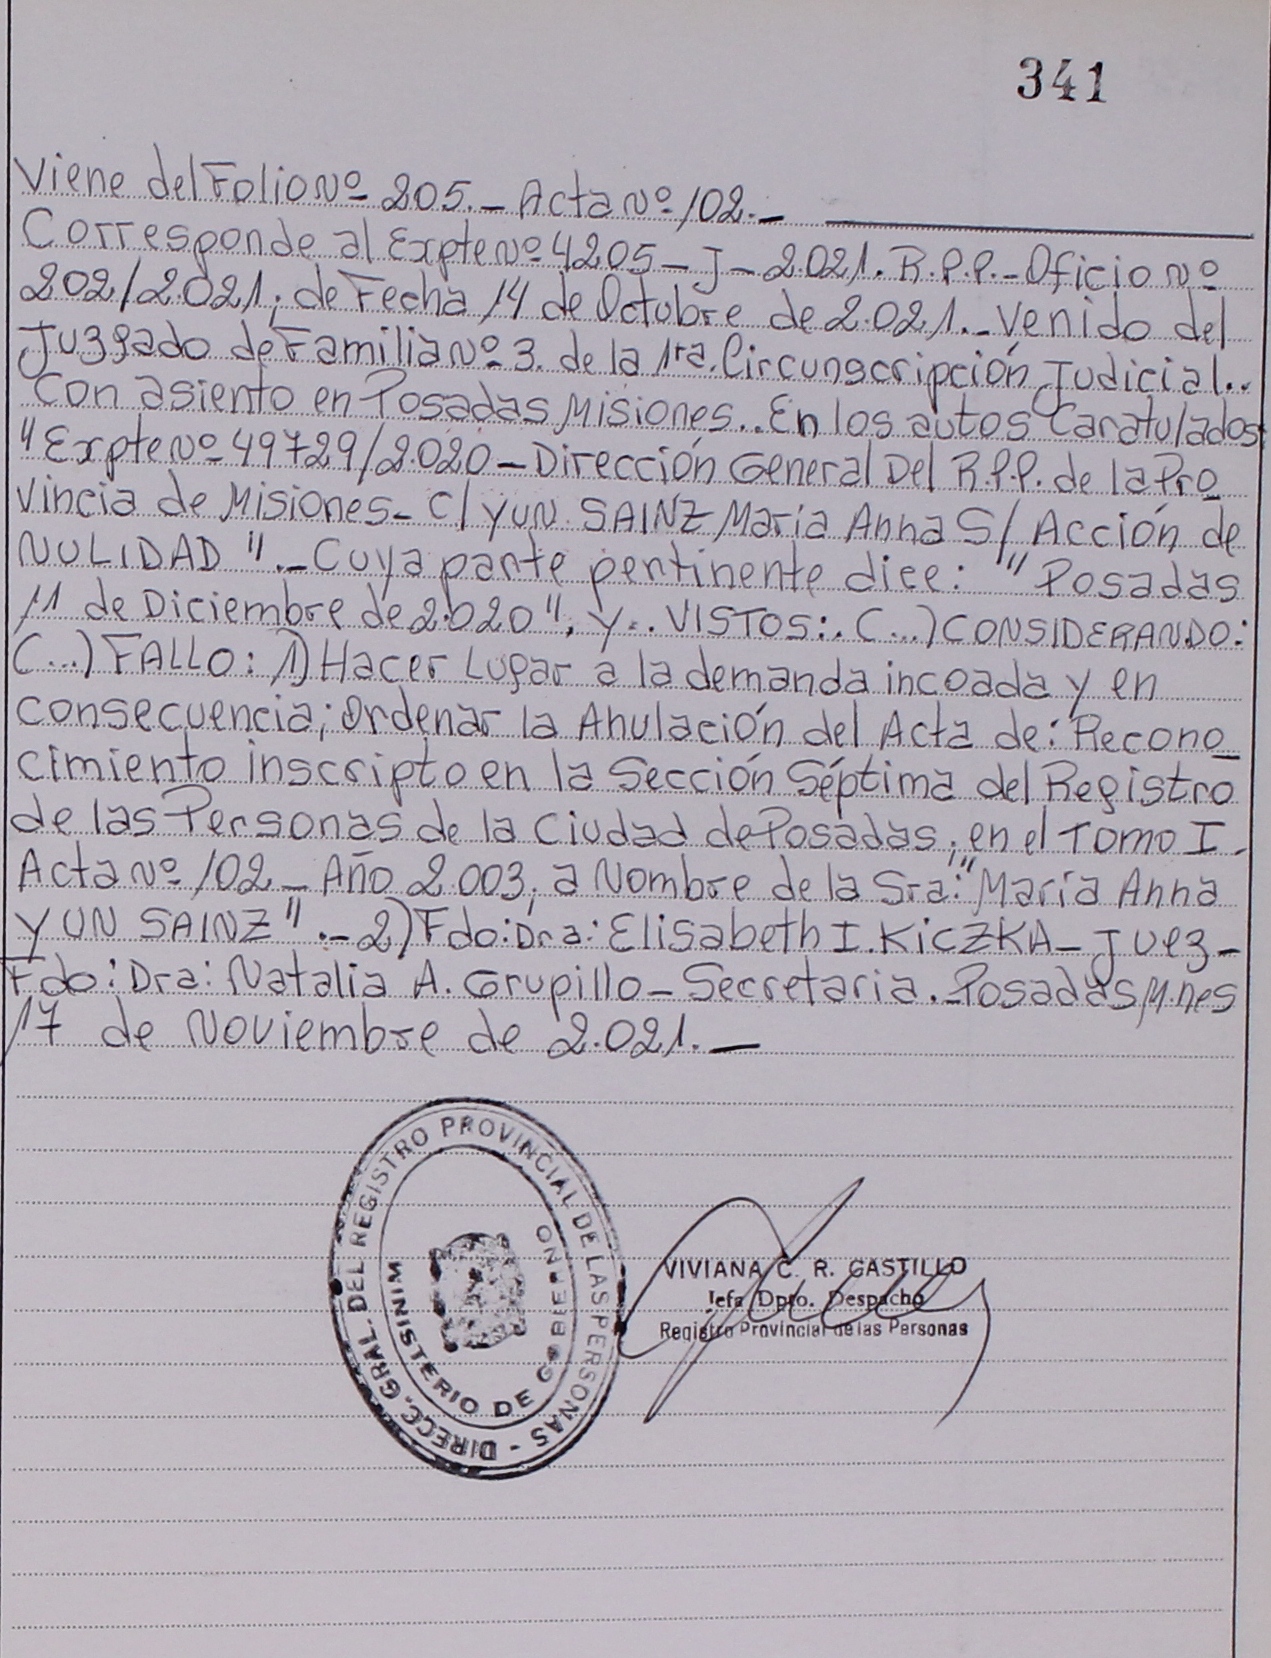 341
Viene del Folio Nº 205._ Acta Nº 102._
Corresponde al Expte Nº 4205_J_2.021. R.P.P._Oficio Nº
202/2.021, de Fecha 14 de Octubre de 2.021._Venido del
Juzgado de Familia Nº 3. de la 1ra. Circunscripción Judicial..
Con asiento en Posadas Misiones.. En los autos Caratulados
"Expte Nº 49729/2.020_Dirección General Del R.P.P. de la Pro_
vincia de Misiones_ C/ YUN SAINZ María Anna S/ Acción de
NULIDAD"._Cuya parte pertinente dice: "Posadas
11 de Diciembre de 2.020", Y.. VISTOS:. (...) CONSIDERANDO:
(...) FALLO: 1) Hacer Lugar a la demanda incoada y en
Consecuencia; Ordenar la Anulación del Acta de: Recono_
cimiento inscripto en la Sección Séptima del Registro
de las Personas de la Ciudad de Posadas, en el Tomo I_
Acta Nº 102_ Año 2.003, a Nombre de la Sra: "María Anna
YUN SAINZ"._2) Fdo: Dra: Elisabeth I. KICZKA_Juez_
Fdo: Dra: Natalia A. Grupillo_Secretaria._Posadas M.nes
17 de Noviembre de 2.021._
DIRECC. GRAL. DEL REGISTRO PROVINCIAL DE LAS PERSONAS -
MINISTERIO DE GOBIERNO
VIVIANA C. R. CASTILLO
Jefa Dpto. Despacho
Registro Provincial de las Personas